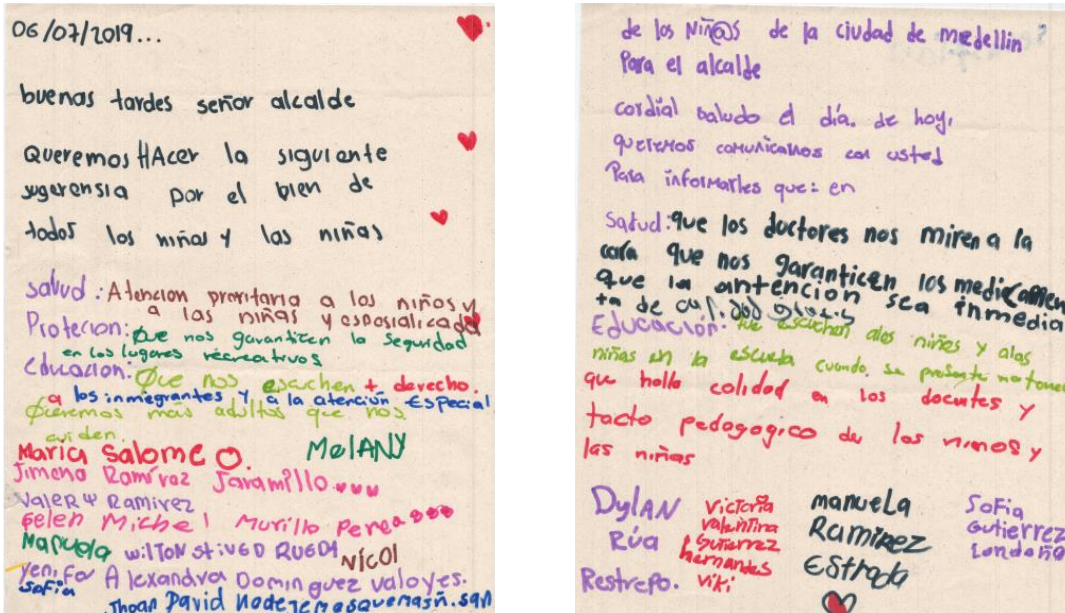 06/07/2019...
buenas tardes señor alcalde
Queremos HAcer la siguiente
sugerensia por el bien de
todos los niñas y las niñas
salud: Atencion prioritaria a los niños y
a las niñas y espesializada
Protecion: Que nos garanticen la seguridad
en los lugares recreativos
Educacion: Que nos escuchen + derecho.
a los inmegrantes y a la atención Especial
Queremos más adultos que nos
cuiden.
Maria Salome O. MelANY
Jimena Ramírez Jaramillo
ValeRy Ramirez
Gelen Michel Murillo Perea
Manuela wilToN StiveD RUEDA NícOl
Yenifer Alexandra Dominguez valoyes.
Sofia
Jhoan David
de los Niñ@s de la ciudad de medellin
Para el alcalde
cordial saludo el día. de hoy,
queremos comunicarnos con usted
Para informarles que: en
Salud: que los doctores nos miren a la
cara que nos garanticen los medicamen
que la antencion sea inmedia
ta de
Educación: que escuchen alos niños y alas
niñas en la escuela cuando. se presente
que halla calidad en los docentes y
tacto pedagogico de los ninos y
las niñas
DylAN
Rúa
Restrepo.
Victoria
valentina
Gutierrez
hernandes
viki
manuela
Ramirez
EStrada
SoFia
Gutierrez
Londoño